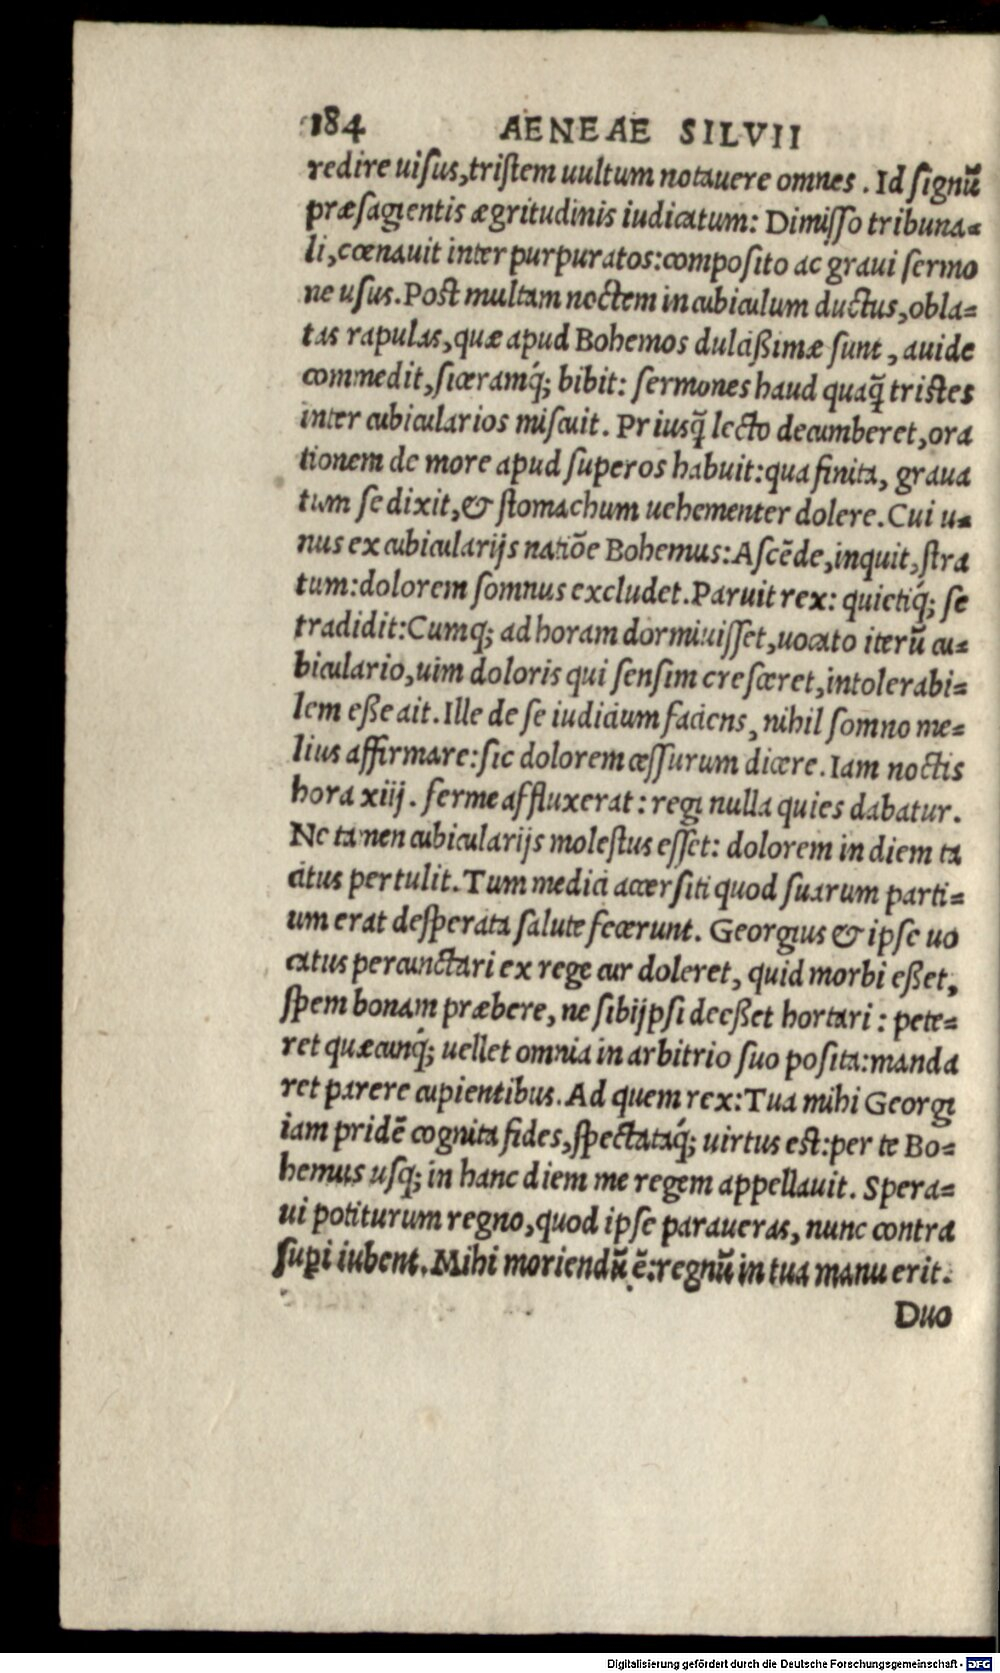 184 AENEAE SILVII
redire uisus, tristem uultum notauere omnes. Id signũ
præsagientis ægritudinis iudicatum: Dimisso tribuna=
li, cœnauit inter purpuratos: composito ac graui sermo
ne usus. Post multam noctem in cubiculum ductus, obla=
tas rapulas, quæ apud Bohemos dulcißimæ sunt, auide
commedit, siceramq́; bibit: sermones haud quaq̃ tristes
inter cubicularios miscuit. Priusq̃ lecto decumberet, ora
tionem de more apud superos habuit: qua finita, graua
tum se dixit, & stomachum uehementer dolere. Cui u=
nus ex cubicularijs natiõe Bohemus: Ascẽde, inquit, stra
tum: dolorem somnus excludet. Paruit rex: quietiq́; se
tradidit: Cumq; ad horam dormiuisset, uocato iterũ cu=
biculario, uim doloris qui sensim cresceret, intolerabi=
lem eße ait. Ille de se iudicium faciens, nihil somno me=
lius affirmare: sic dolorem cessurum dicere. Iam noctis
hora xiij. ferme affluxerat: regi nulla quies dabatur.
Ne tamen cubicularijs molestus esset: dolorem in diem ta
citus pertulit. Tum medici accersiti quod suarum parti=
um erat desperata salute fecerunt. Georgius & ipse uo
catus percunctari ex rege cur doleret, quid morbi eßet,
spem bonam præbere, ne sibijpsi deeßet hortari: pete=
ret quæcunq́; uellet omnia in arbitrio suo posita: manda
ret parere cupientibus. Ad quem rex: Tua mihi Georgi
iam pridẽ cognita fides, spectataq́; uirtus est: per te Bo=
hemus usq; in hanc diem me regem appellauit. Spera=
ui potiturum regno, quod ipse paraueras, nunc contra
supi iubent. Mihi moriendũ ẽ: regnũ in tua manu erit.
Duo
Digitalisierung gefördert durch die Deutsche Forschungsgemeinschaft - DFG